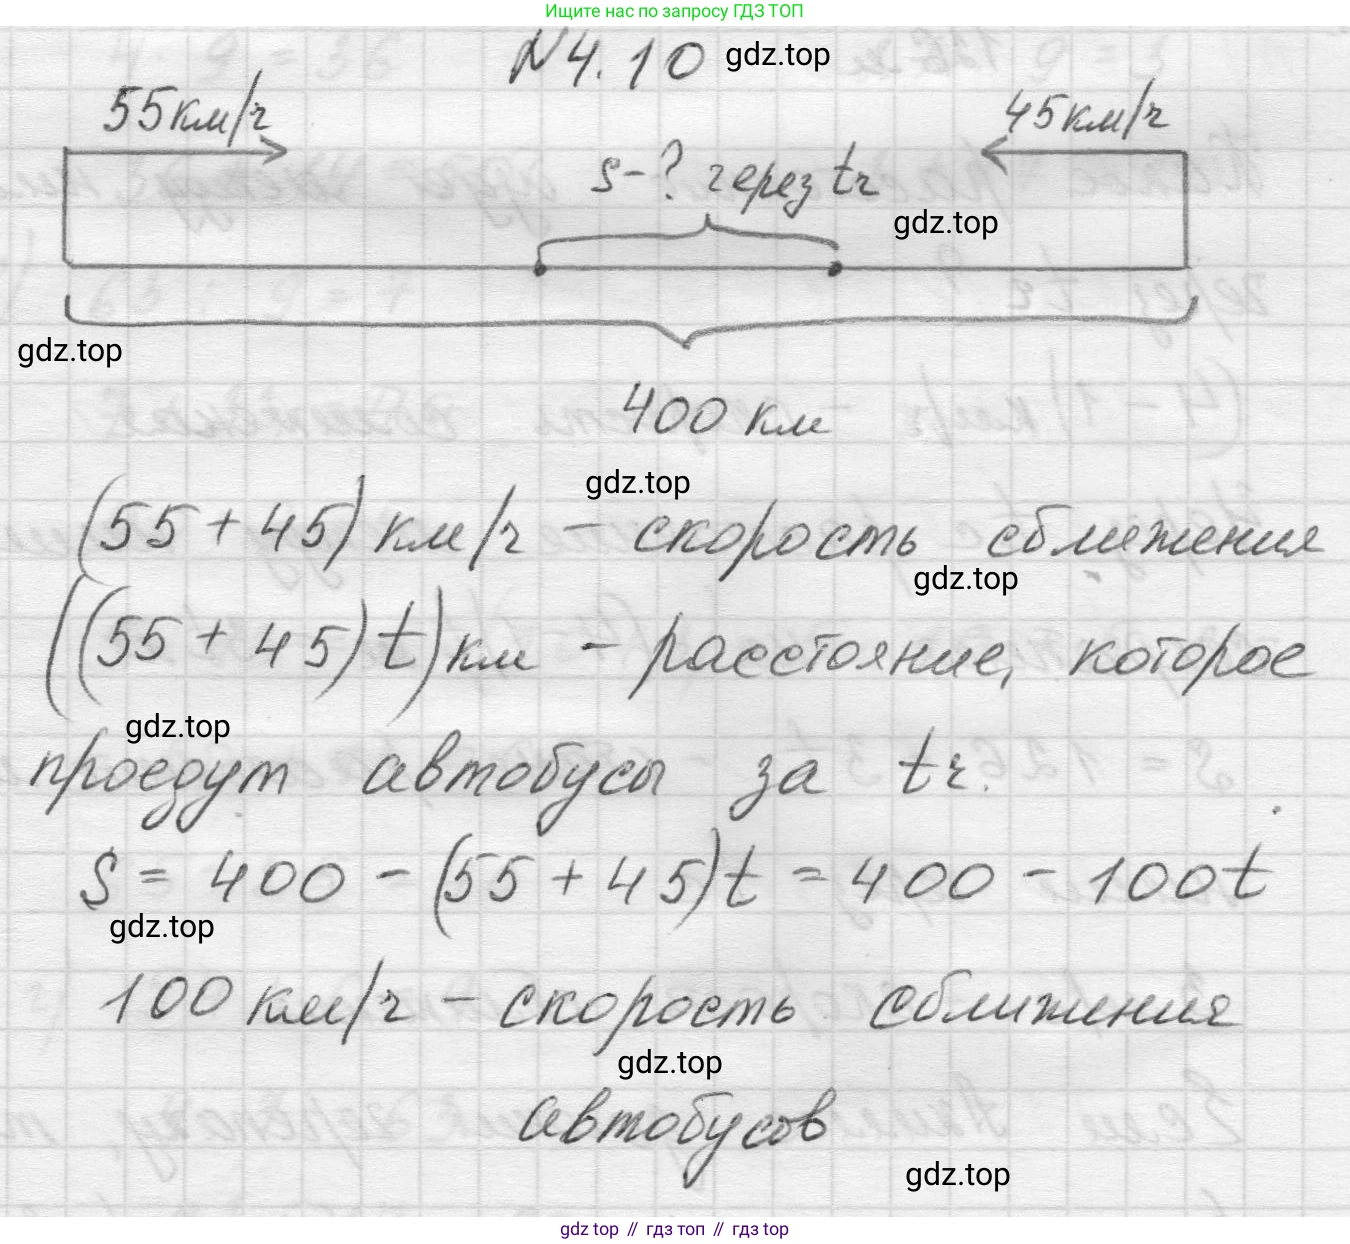 Ищите нас по запросу ГДЗ ТОП
№4.10 gdz.top
55км/ч 45км/ч
s-? через tч
gdz.top
gdz.top
400 км
gdz.top
(55 + 45) км/ч - скорость сближения
gdz.top
((55 + 45)t) км - расстояние, которое
gdz.top
проедут автобусы за tч.
S = 400 - (55 + 45)t = 400 - 100t
gdz.top
100 км/ч - скорость сближения
gdz.top
автобусов
gdz.top
gdz top // гдз топ // гдз top